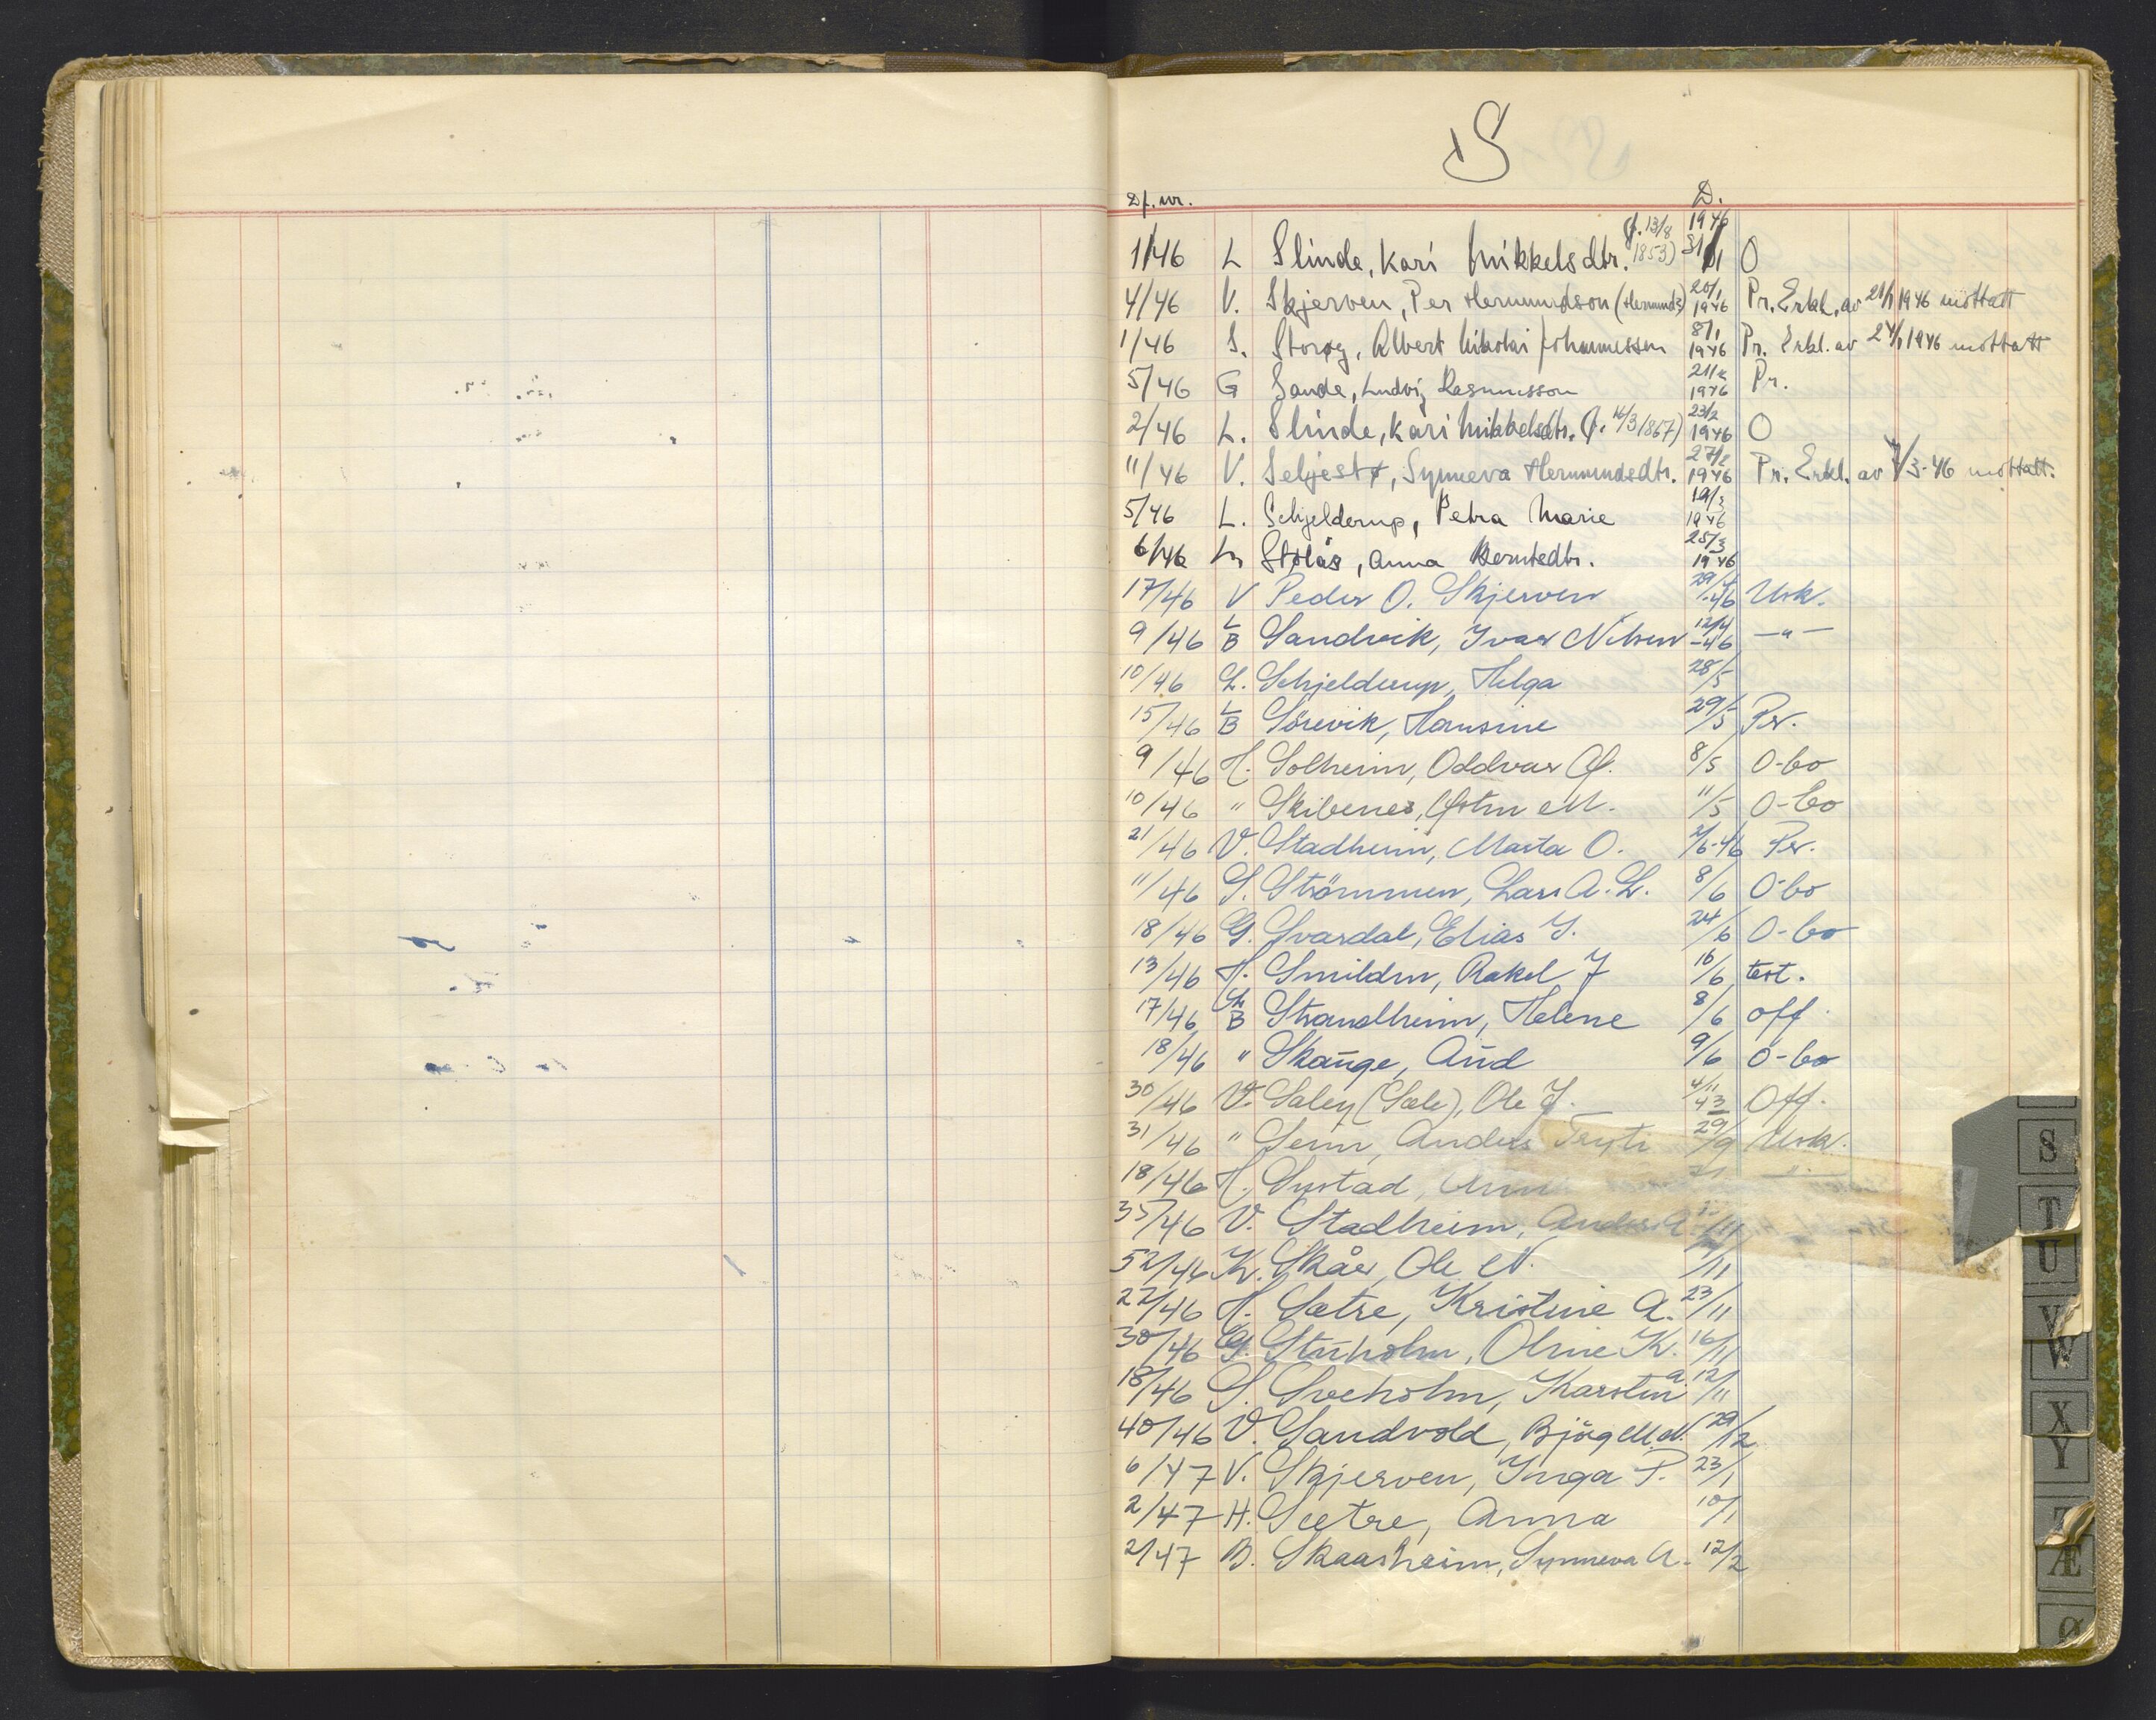 S
Df. nr. D.
1/46 L Slinde, Kari Mikkelsdtr. (f. 13/8 1853) 31/1 1946 O
4/46 V. Skjerven, Per Hermundson (Hermunds) 20/1 1946 Pr. Erkl. av 21/1 1946 mottatt
1/46 S. Storøy, Albert Nikolai Johannessen 8/1 1946 Pr. Erkl. av 24/1 1946 mottatt
5/46 G Sande, Ludvig Rasmusson 21/2 1946 Pr.
2/46 L. Slinde, Kari Mikkelsdtr. (f. 16/3 1867) 23/2 1946 O
11/46 V. Seljestø, Synneva Hermundsdtr. 27/2 1946 Pr. Erkl. av 4/3-46 mottatt.
5/46 L. Schjelderup, Petra Marie 19/3 1946
6/46 L. Stølås, Anna Berntsdtr. 25/3 1946
17/46 V Peder O. Skjerven 29/4 -46 Usk.
9/46 L B Sandvik, Ivar Nilsen 12/4 -46 -"-
10/46 L. Schjelderup, Helga 28/5
15/46 L B Sörevik, Hansine 29/5 Pr.
9/46 H. Solheim, Oddvar 8/5 O-bo
10/46 " Skibenes, M. 11/5 O-bo
21/46 V. Stadheim, Marta O. 2/6-46 Pr.
11/46 S. Strömmen, Lars A. L. 8/6 O-bo
18/46 G. Svardal, Elias J. 24/6 O-bo
13/46 H. Smilden, Rakel J 16/6 test.
17/46 L B Strandheim, Helene 8/6 off.
18/46 " Skauge, Aud 9/6 O-bo
30/46 V. Saley (Sæle), Ole J. 4/11 43 Off.
31/46 " Seim, Anders 29/9 Usk.
18/46 H. Systad, -"-
35/46 V. Stadheim, Anders A. /11
52/46 K. Skår, Ole N. /11
22/46 H. Sætre, Kristine A. 23/11
30/46 G. Sturholm, Oline K. 16/11
18/46 S. Sveholm, Karstin A. 12/11
40/46 V. Sandvold, Bjög M. N. 29/12
6/47 V. Skjerven, Inga P. 23/1
2/47 H. Sætre, Anna 10/1
2/47 B. Skaasheim, Synneva A. 12/2
S
T
U
V
W
X
Y
Z
Æ
Ø